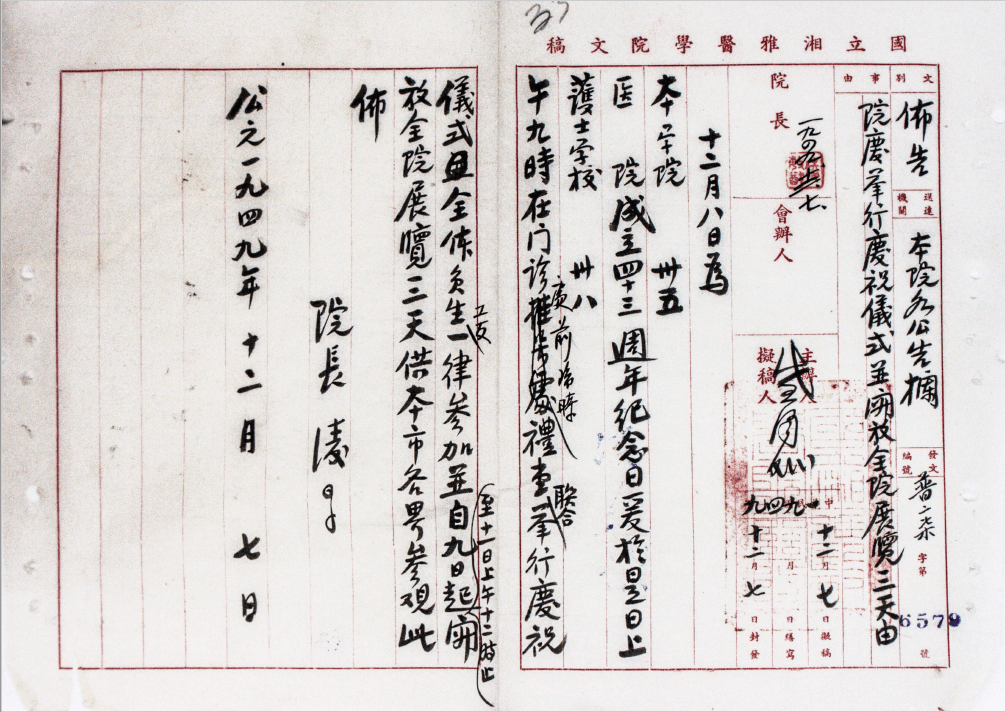 國立湘雅醫學院文稿
文別
佈告
送達機關
本院各公告欄
發文編號
字第
6579
號
事由
院慶舉行慶祝儀式並開放全院展覽三天由
院長
會辦人
主辦人
擬稿人
十二月七日擬稿
月 日繕寫
九四九
十二月七日封發
十二月八日為
本學院 卅五
医 院成立四十三週年纪念日爰於是日上
護士学校 卅八
午九時在门诊
廣前臨時
禮堂聯合舉行慶祝
儀式
全体员生工友一律参加並自九日起
至十一日上午十二時止
開
放全院展覽三天供本市各界参观此
佈
院長 凌
公元一九四九年十二月 七日